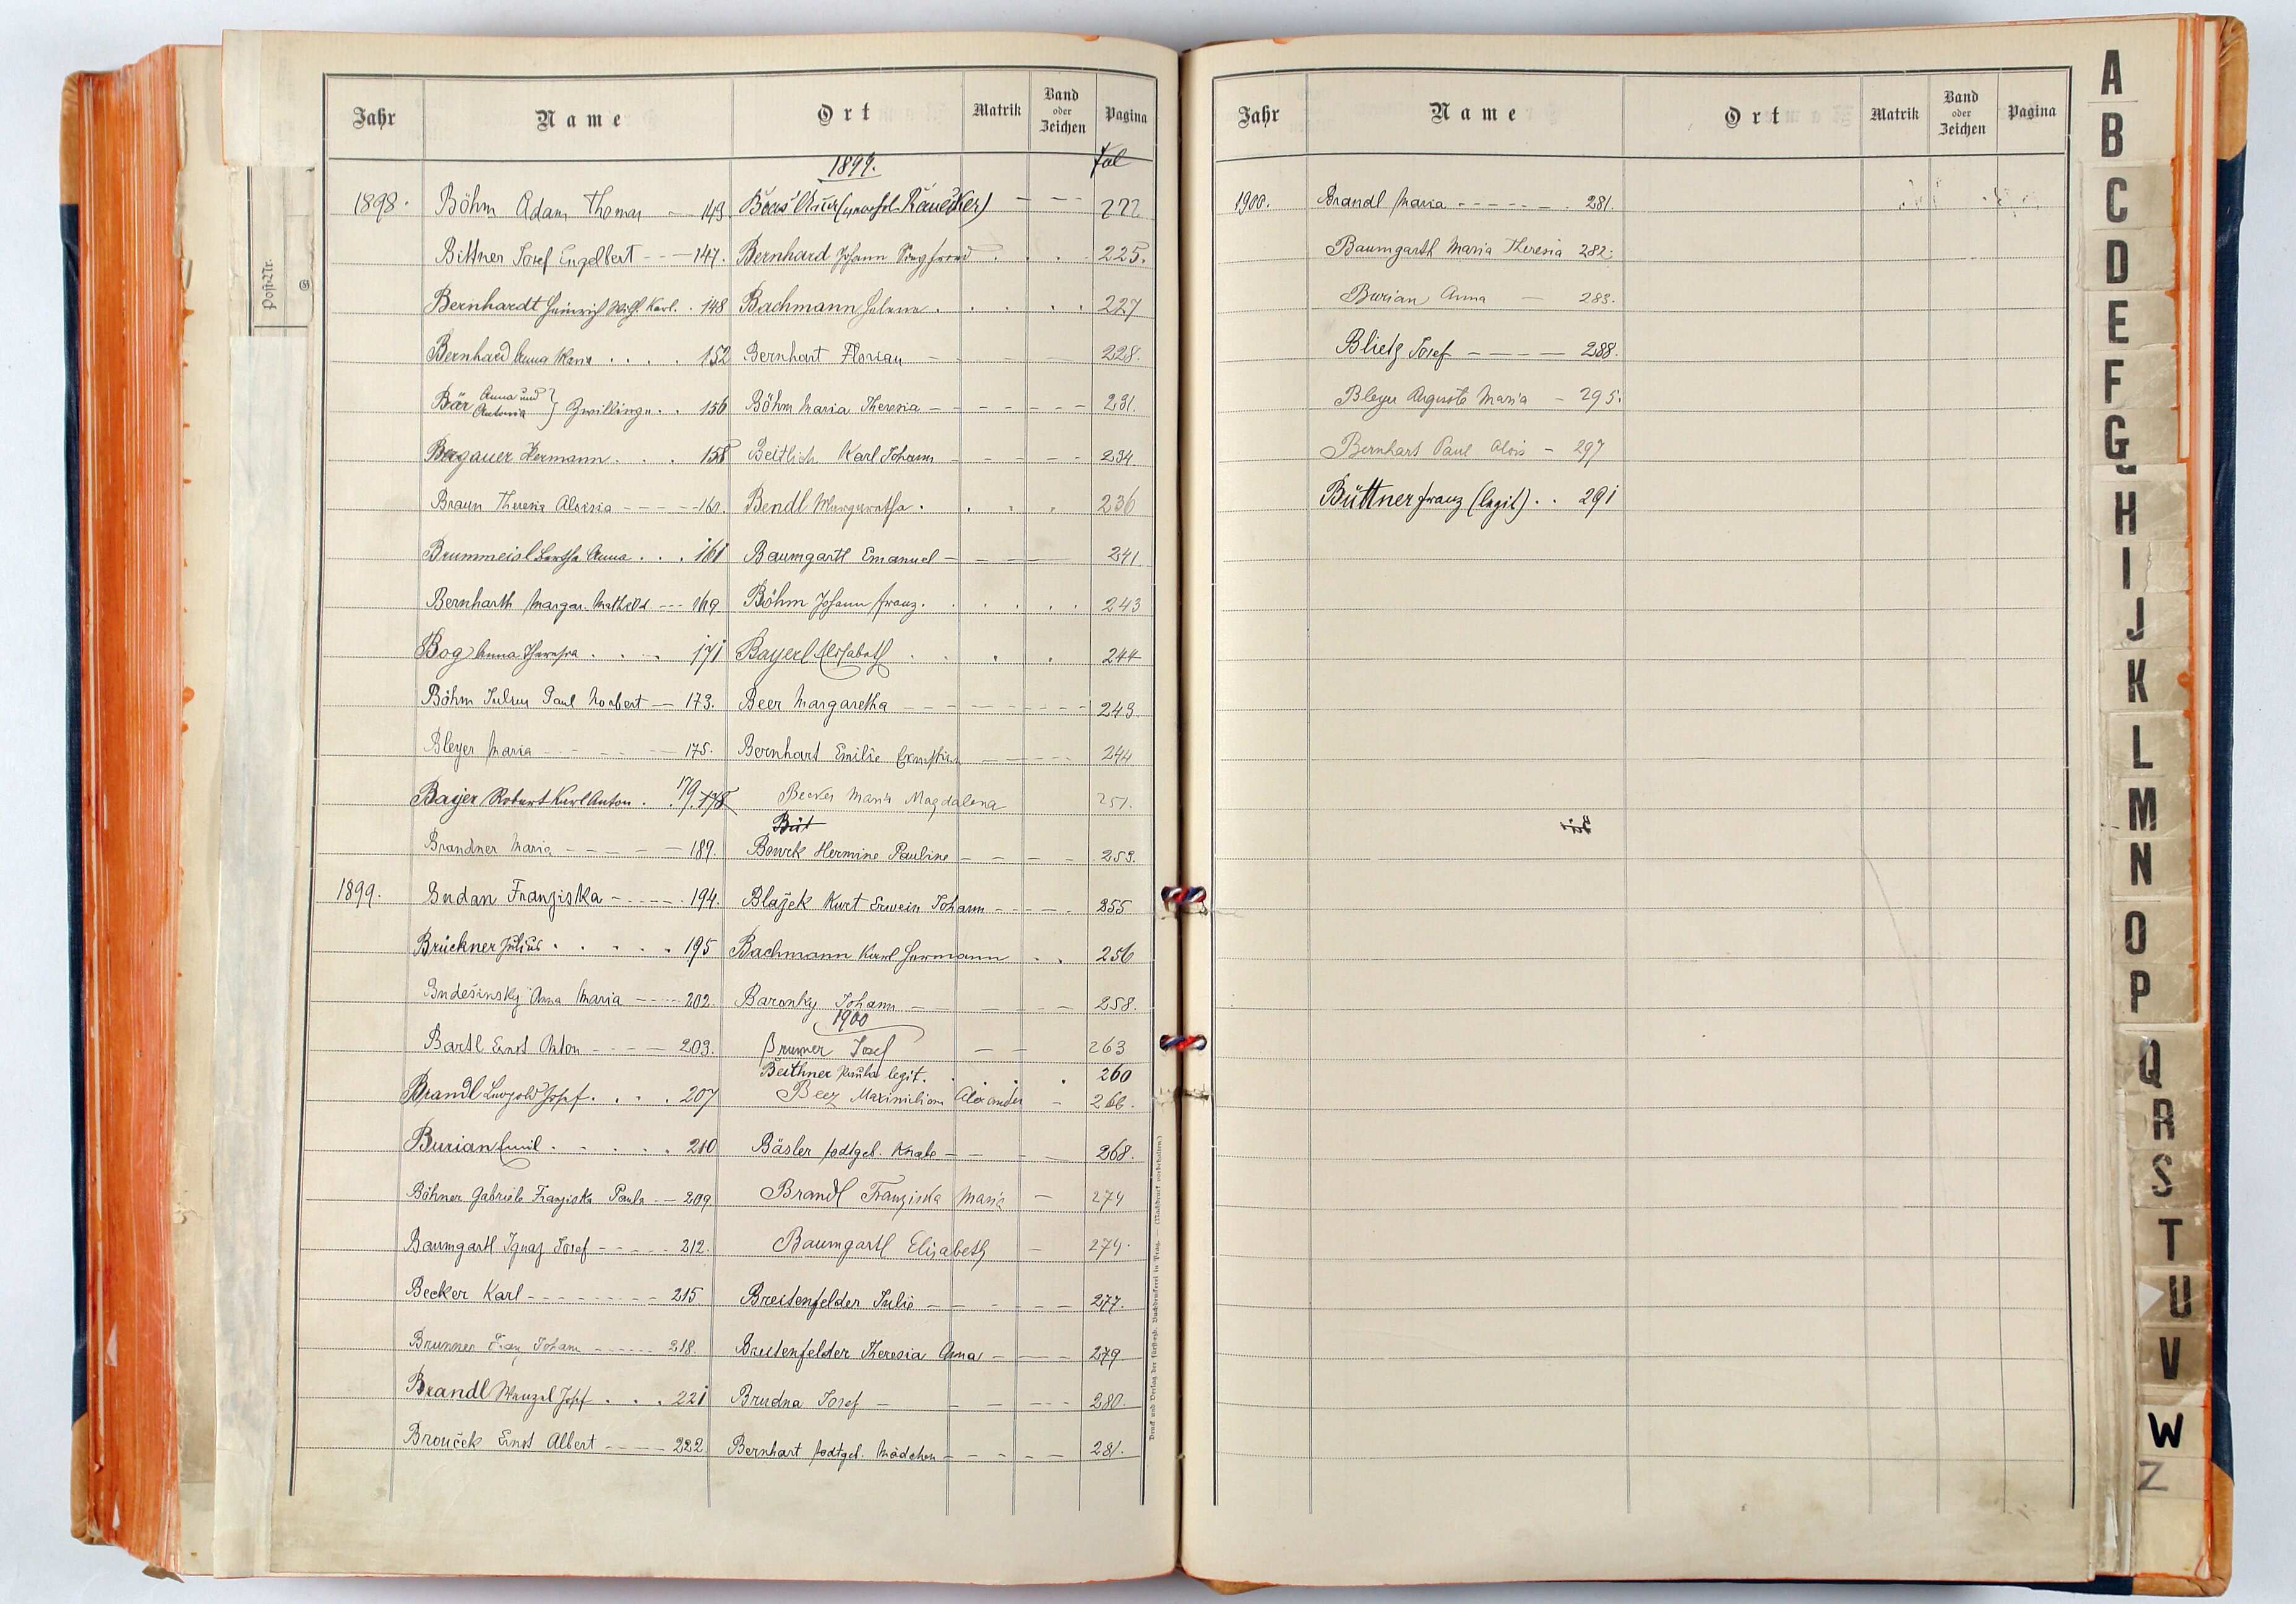 Jahr Name Ort Matrik Band oder Zeichen Pagina
1899. fol
1898. Böhm Adam Thomas — 143
222
Bittner Josef Engelbert - - — 147. Bernhard Johann . . . . 225.
Bernhardt Heinrich Wilh. Karl. . 148 Bachmann Helene . . . . . 227
Bernhard Anna . . . . 152 Bernhart Florian — 228.
Bär Anna und Antonia } Zwillinge . . 156 Böhm Maria Theresia - - - - - - - 231.
Bergauer Hermann . . . 158 Beitlich Karl Johann - - - - - 234.
Braun Theresia Aloisia - - - - - 161. Bendl Margaretha . . . . 236
Brummeisl Bertha Anna . . . 161 Baumgartl Emanuel - - - — 241.
Bernharth Margar. Mathild - - - 169 Böhm Johann Franz . . . . . 243
Bog Anna Theresia . . . . 171 Bayerl Elisabeth . . . . 244
Böhm Julius Paul Norbert — 173. Beer Margaretha - - - - - - - - - 243.
Bleyer Maria - - - - - 175. Bernhart Emilie - - - - - 244
Bayer Robert Karl Anton . . 179. 178 Becker Maria Magdalena 251.
Büt
Brandner Maria - - - - - 189. Bowrk Hermine Pauline - - - - 253.
1899. Budan Franziska - - - - - 194. Blažek Kurt Erwein Johann - - - - - 255
Brückner Julius . . . . . . 195 Bachmann Karl Hermann . . 256
Budešinsky Anna Maria - - - - 202. Baronky Johann - - - - - 258.
1900
Bartl Ernst Anton - - - - 203. Brunner Josef - - 263
Beithner Paula legit. . . . . 260
Brandl Leopold Josef . . . . 207 Beez Maximilian Alexander - 266.
Burian Emil . . . . . 210 Bäsler todtgeb. Knabe - - - - 268.
Böhner Gabriele Franziska Paula - - 209. Brandl Franziska Maria - 274
Baumgartl Ignaz Josef - - - - - 212. Baumgartl Elisabeth - 274.
Becker Karl - - - - - - - - - 215 Breitenfelder Julie - - - - - - 277.
Brunner Franz Johann - - - - - - 218. Breitenfelder Theresia Anna - - - - 279
Brandl Wenzel Josef . . . 221 Brudna Josef - - - - - - 280.
Brouček Ernst Albert - - - - 222. Bernhart todtgeb. Mädchen - - - - - 281.
Druck und Verlag der fürsterzb. Buchdruckerei in Prag. — (Nachdruck vorbehalten.)
Post-Nr.
Jahr Name Ort Matrik Band oder Zeichen Pagina
1900. Brandl Maria - - - - - - 281.
Baumgartl Maria Theresia 282.
Burian Anna — 283.
Blietz Josef - - - - - 288.
Bleyer Auguste Maria - 295.
Bernhart Paul Alois - 297
Büttner Franz (legit.) . . 291
A
B
C
D
E
F
G
H
I
J
K
L
M
N
O
P
Q
R
S
T
U
V
W
Z